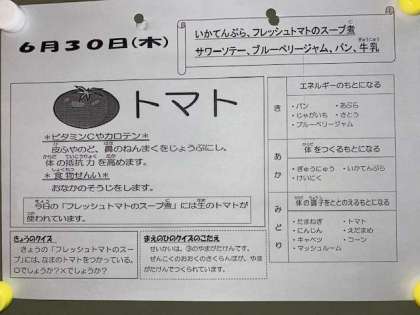 6月30日(木)
いかてんぷら、フレッシュトマトのスープ煮
サワーソテー、ブルーベリージャム、パン、牛乳
トマト
＊ビタミンCやカロテン＊
皮ふやのど、鼻のねんまくをじょうぶにし、
体の抵抗力を高めます。
＊食物せんい＊
おなかのそうじをします。
今日の「フレッシュトマトのスープ煮」には生のトマトが
使われています。
きょうのクイズ
きょうの「フレッシュトマトのスー
プ」には、なまのトマトをつかっている。
○でしょうか?×でしょうか?
まえのひのクイズのこたえ
せいかいは、③のやまがたけんです。
ぜんこくのおおくのさくらんぼが、やま
がたけんでつくられています。
き
エネルギーのもとになる
・パン ・あぶら
・じゃがいも ・さとう
・ブルーベリージャム
あか
体をつくるもとになる
・ぎゅうにゅう ・いかてんぷら
・けいにく
みどり
体の調子をととのえるもとになる
・たまねぎ ・トマト
・にんじん ・えだまめ
・キャベツ ・コーン
・マッシュルーム